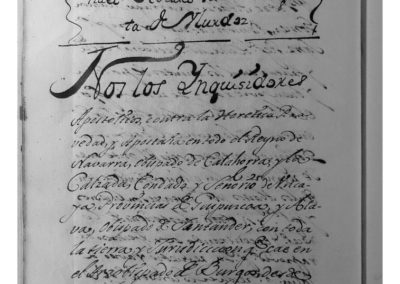 ta de Murdoz
Nos los Ynquisidores
Apostolicos, contra la Heretica Pra
vedad, y Apostasia en todo el Reyno de
Navarra, obispado de Calahorra, y la
Calzada, Condado, y Señorio de Vizca
ya, Provincias de Guipuzcoa, y Ala
va, obispado de Santander, con toda
la tierra, y Jurisdiccion, q.e cae en
el Arzobispado de Burgos desde